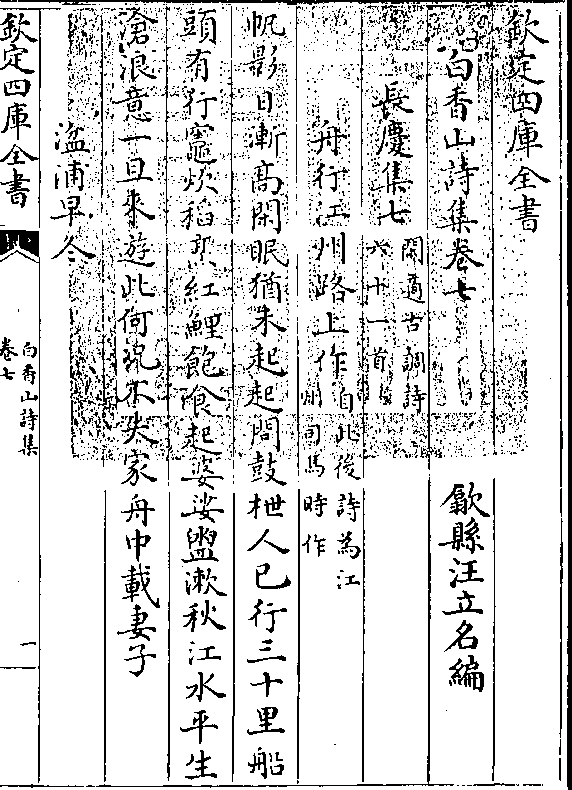 欽定四庫全書
白香山詩集卷七
歙縣汪立名編
長慶集七
閒適古調詩
六十一首
舟行江州路上作
自此後詩為江
州司馬時作
帆影日漸髙閑眠猶未起起問鼓枻人已行三十里船
頭有行竈炊稻烹紅鯉飽食起婆娑盥漱秋江水平生
滄浪意一旦來遊此何況不失家舟中載妻子
湓浦早冬
欽定四庫全書
白香山詩集
卷七
一